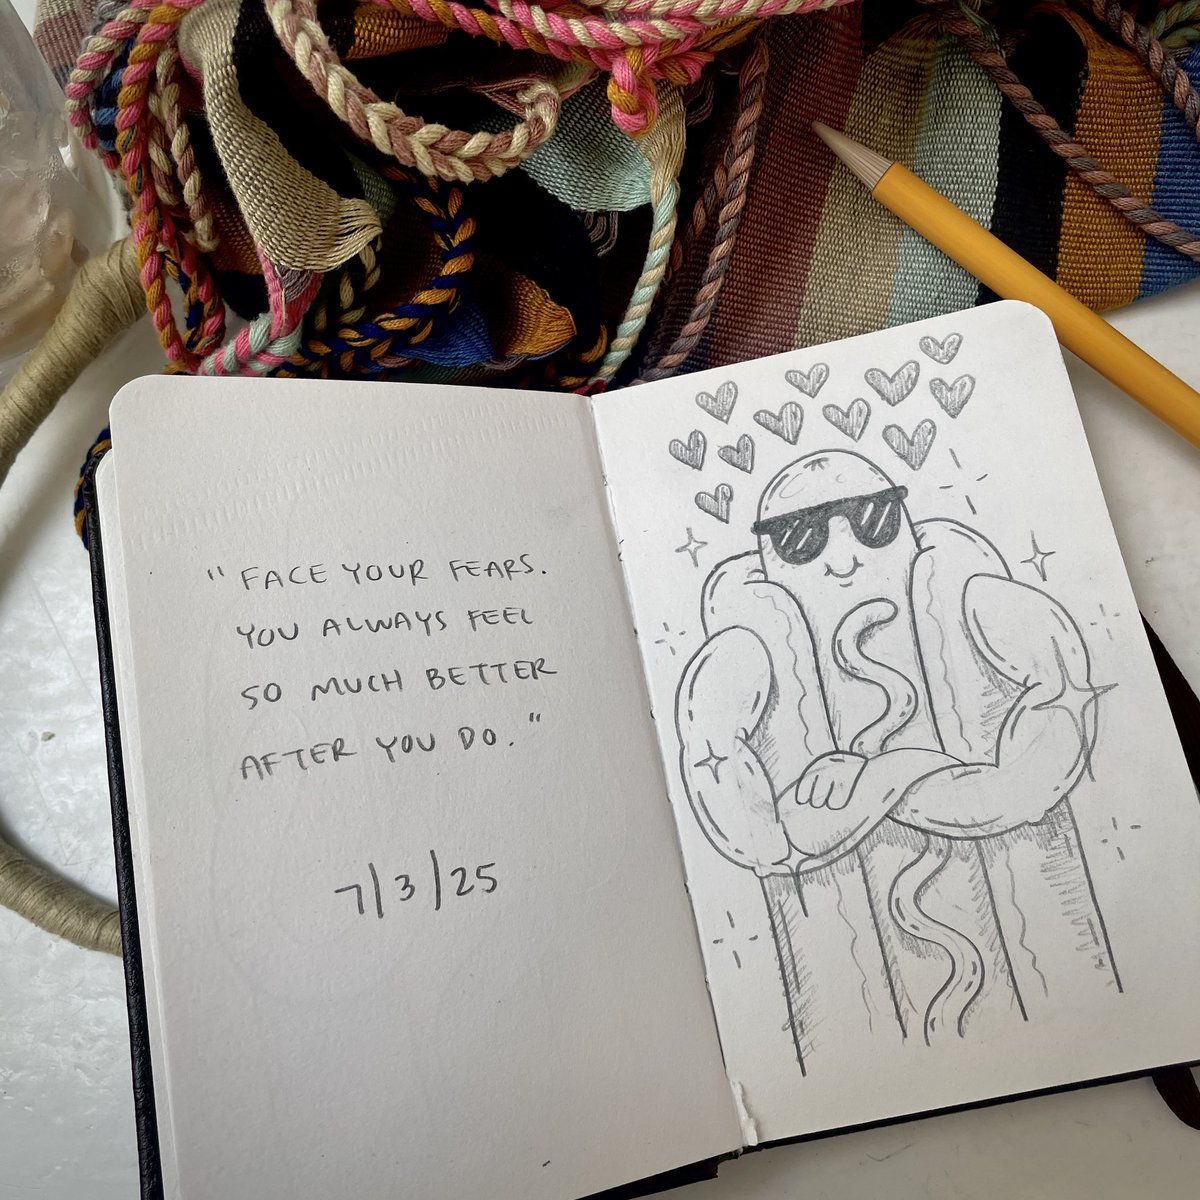 "FACE YOUR FEARS.
YOU ALWAYS FEEL
SO MUCH BETTER
AFTER YOU DO."
7/3/25